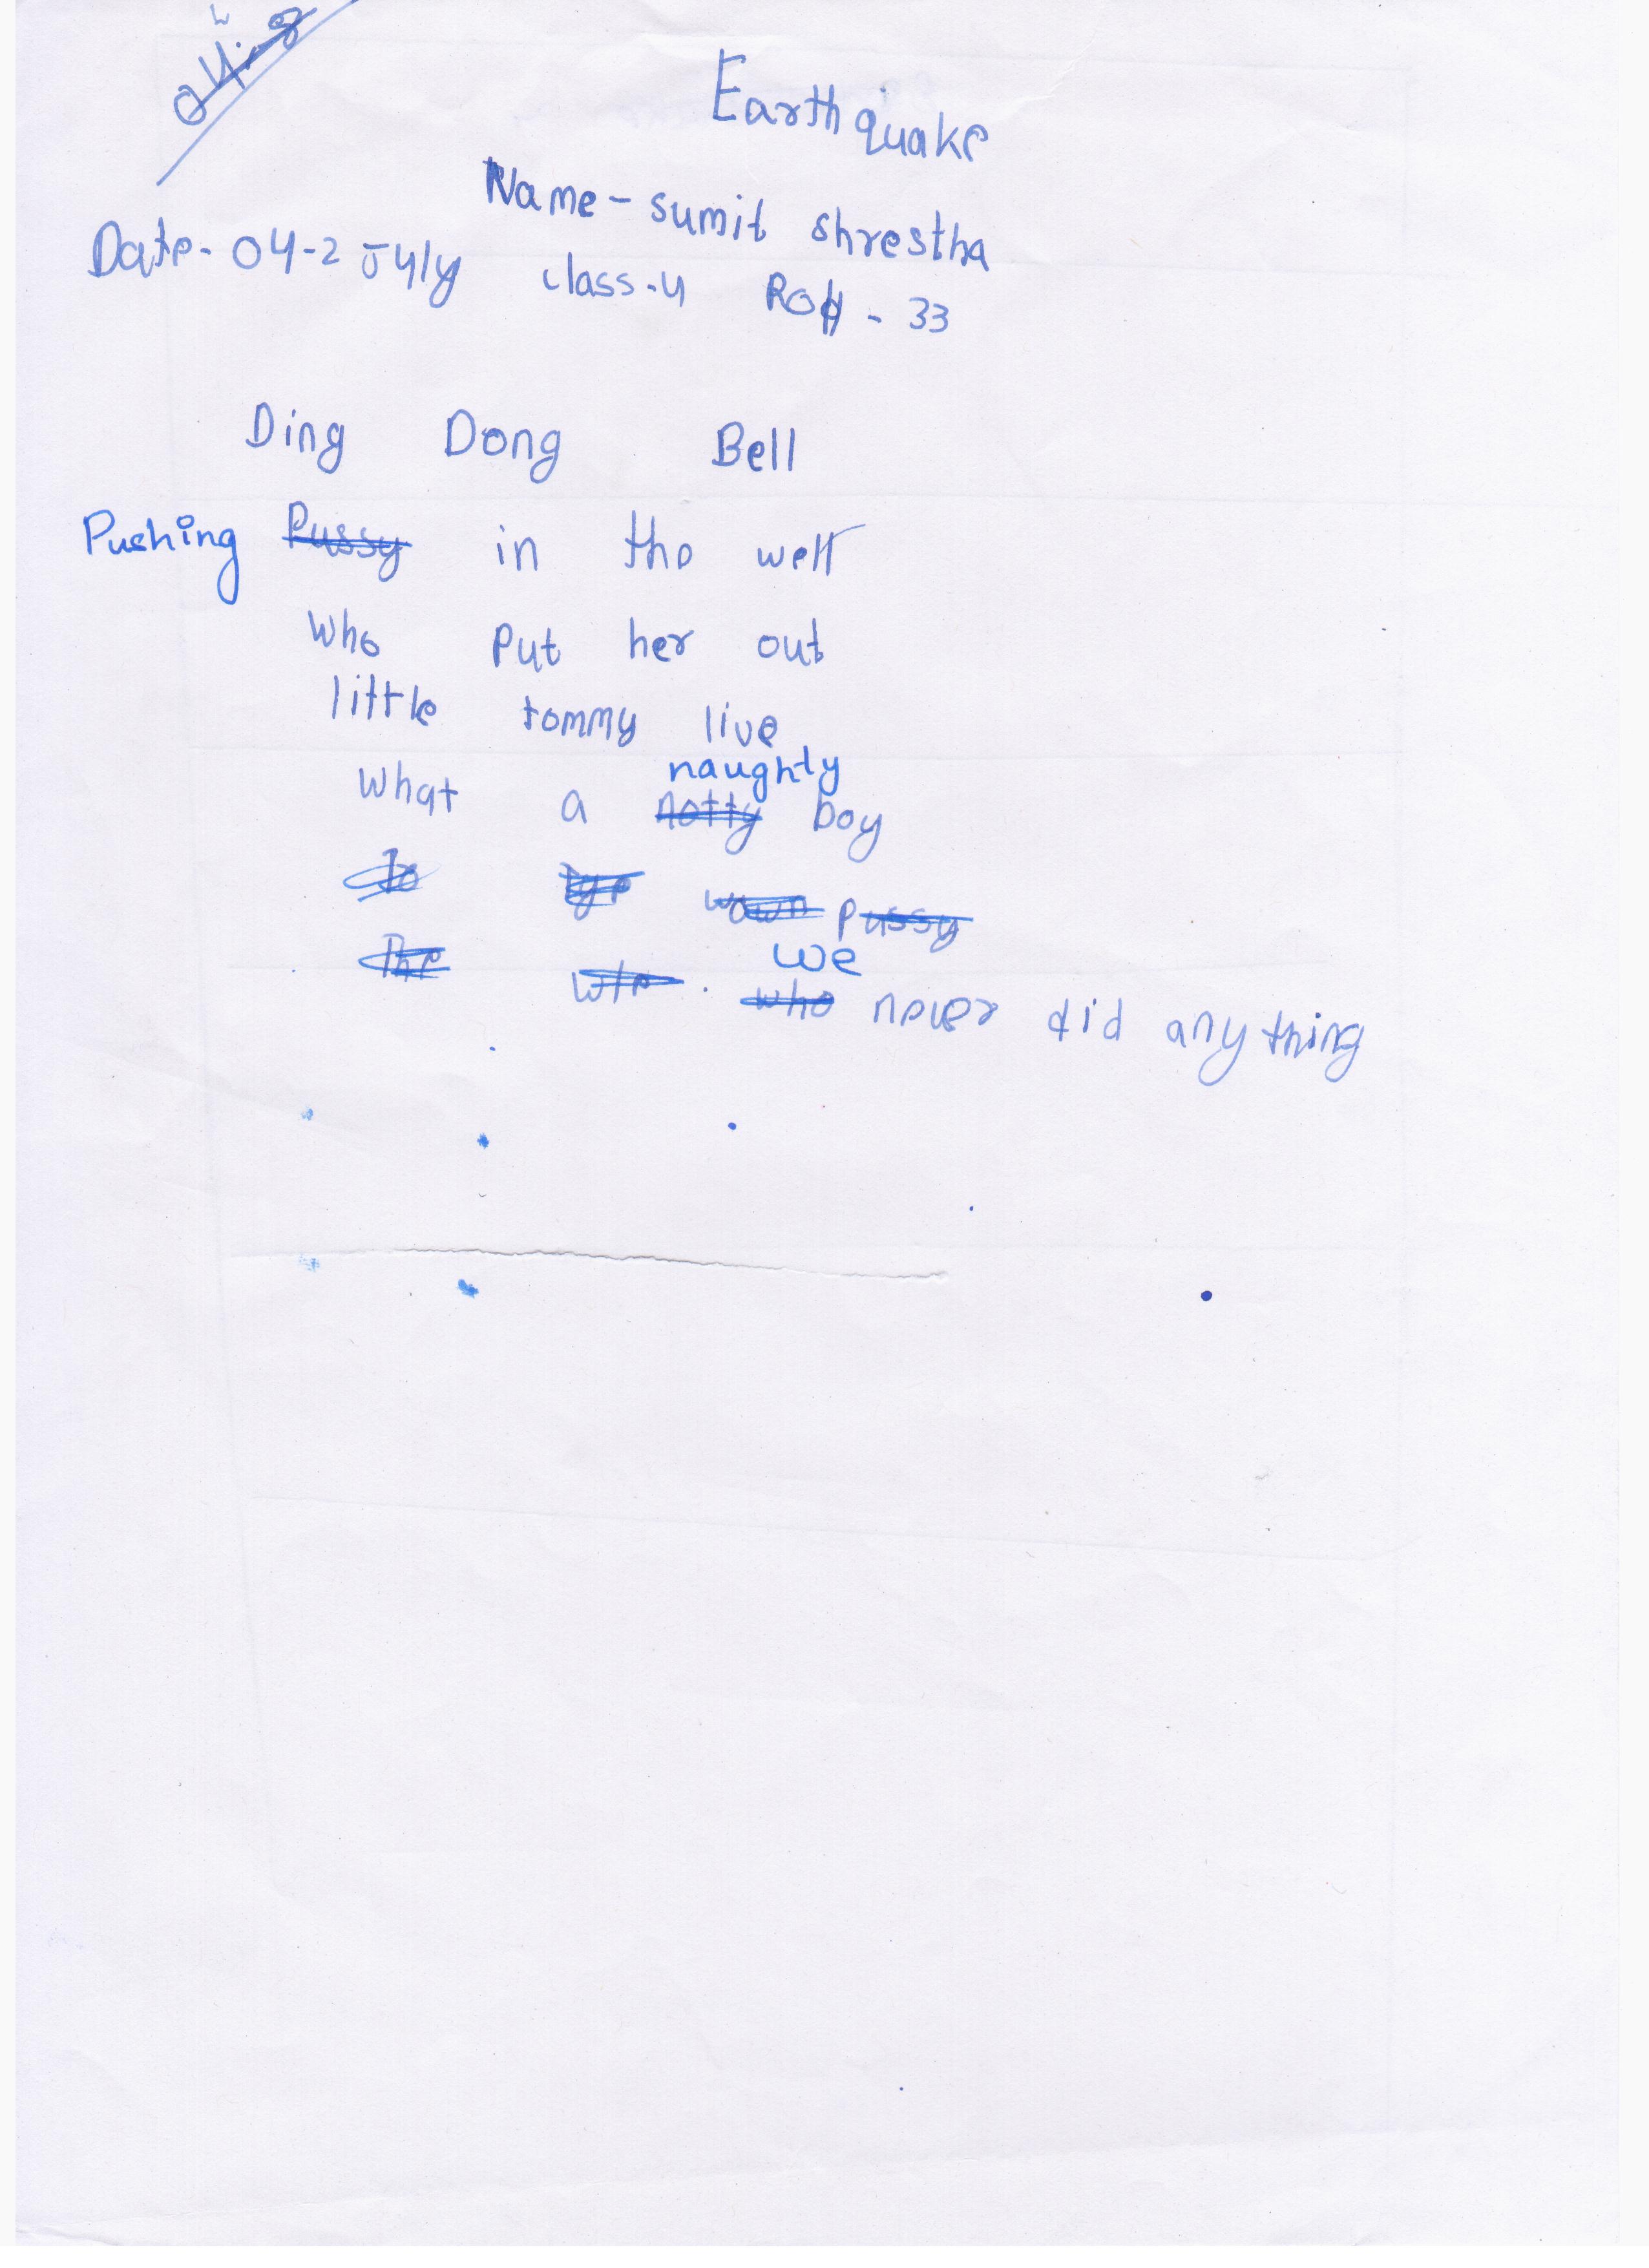 Earthquake
Name - sumit shrestha
Date - 04-2 July class-4 Roll - 33
Ding Dong Bell
Pushing Pussy in the well
Who put her out
little tommy live
naughty
What a notty boy
To pussy
The we
who never did any thing